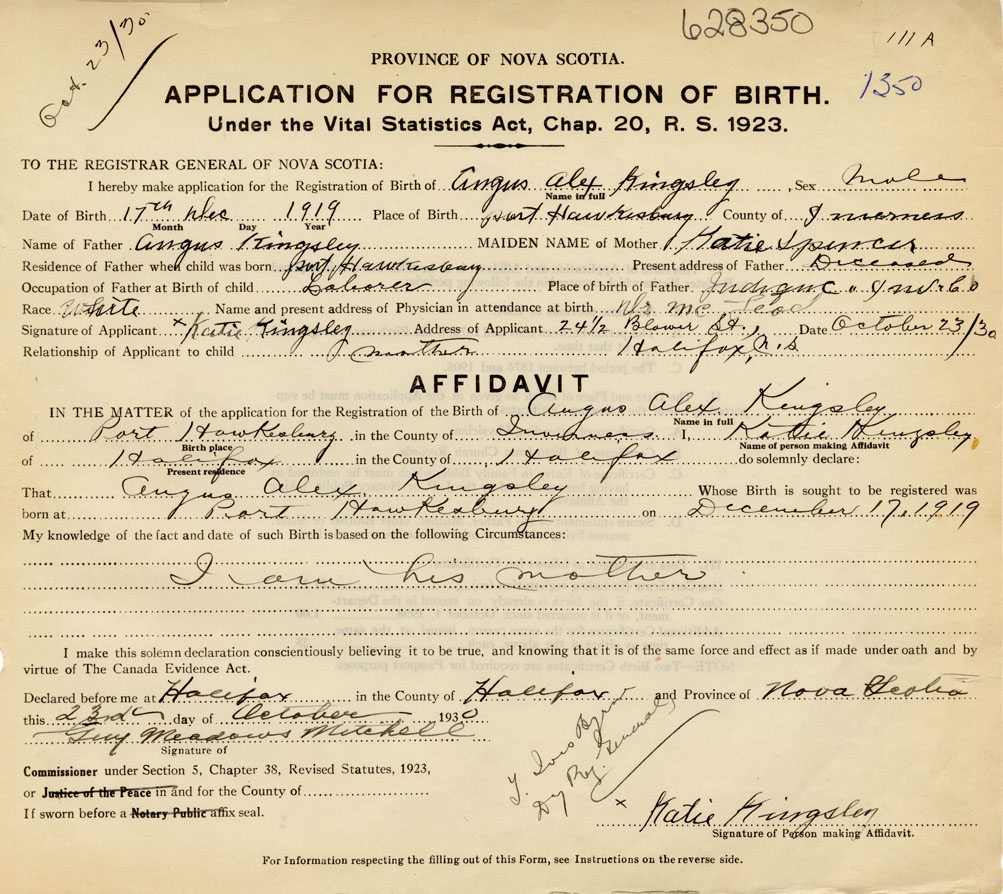 628350
111 A
Oct. 23/30
PROVINCE OF NOVA SCOTIA.
1350
APPLICATION FOR REGISTRATION OF BIRTH.
Under the Vital Statistics Act, Chap. 20, R. S. 1923.
TO THE REGISTRAR GENERAL OF NOVA SCOTIA:
I hereby make application for the Registration of Birth of Angus Alex Kingsley, Sex Male
Name in full
Date of Birth 17th Dec 1919 Place of Birth port Hawkesbury County of Inverness
Month Day Year
Name of Father Angus Kingsley MAIDEN NAME of Mother Katie Spencer
Residence of Father when child was born port Hawkesbury Present address of Father Diceased
Occupation of Father at Birth of child Laborer Place of birth of Father Inv. Co
Race White Name and present address of Physician in attendance at birth Dr Mc Leod
Signature of Applicant x Katie Kingsley Address of Applicant 24½ Blower St., Date October 23/30
Relationship of Applicant to child mother Halifax, N.S.
AFFIDAVIT
IN THE MATTER of the application for the Registration of the Birth of Angus Alex. Kingsley
Name in full
of Port Hawkesbury in the County of Inverness I, Katie Kingsley
Birth place Name of person making Affidavit
of Halifax in the County of Halifax do solemnly declare:
Present residence
That Angus Alex. Kingsley Whose Birth is sought to be registered was
born at Port Hawkesbury on December 17, 1919
My knowledge of the fact and date of such Birth is based on the following Circumstances:
I am his mother
I make this solemn declaration conscientiously believing it to be true, and knowing that it is of the same force and effect as if made under oath and by
virtue of The Canada Evidence Act.
Declared before me at Halifax in the County of Halifax and Province of Nova Scotia
this 23rd day of October 1930
Guy Meadows Mitchell
Signature of
Commissioner under Section 5, Chapter 38, Revised Statutes, 1923,
or Justice of the Peace in and for the County of
If sworn before a Notary Public affix seal.
Dy Reg. General
x Katie Kingsley
Signature of Person making Affidavit.
For Information respecting the filling out of this Form, see Instructions on the reverse side.